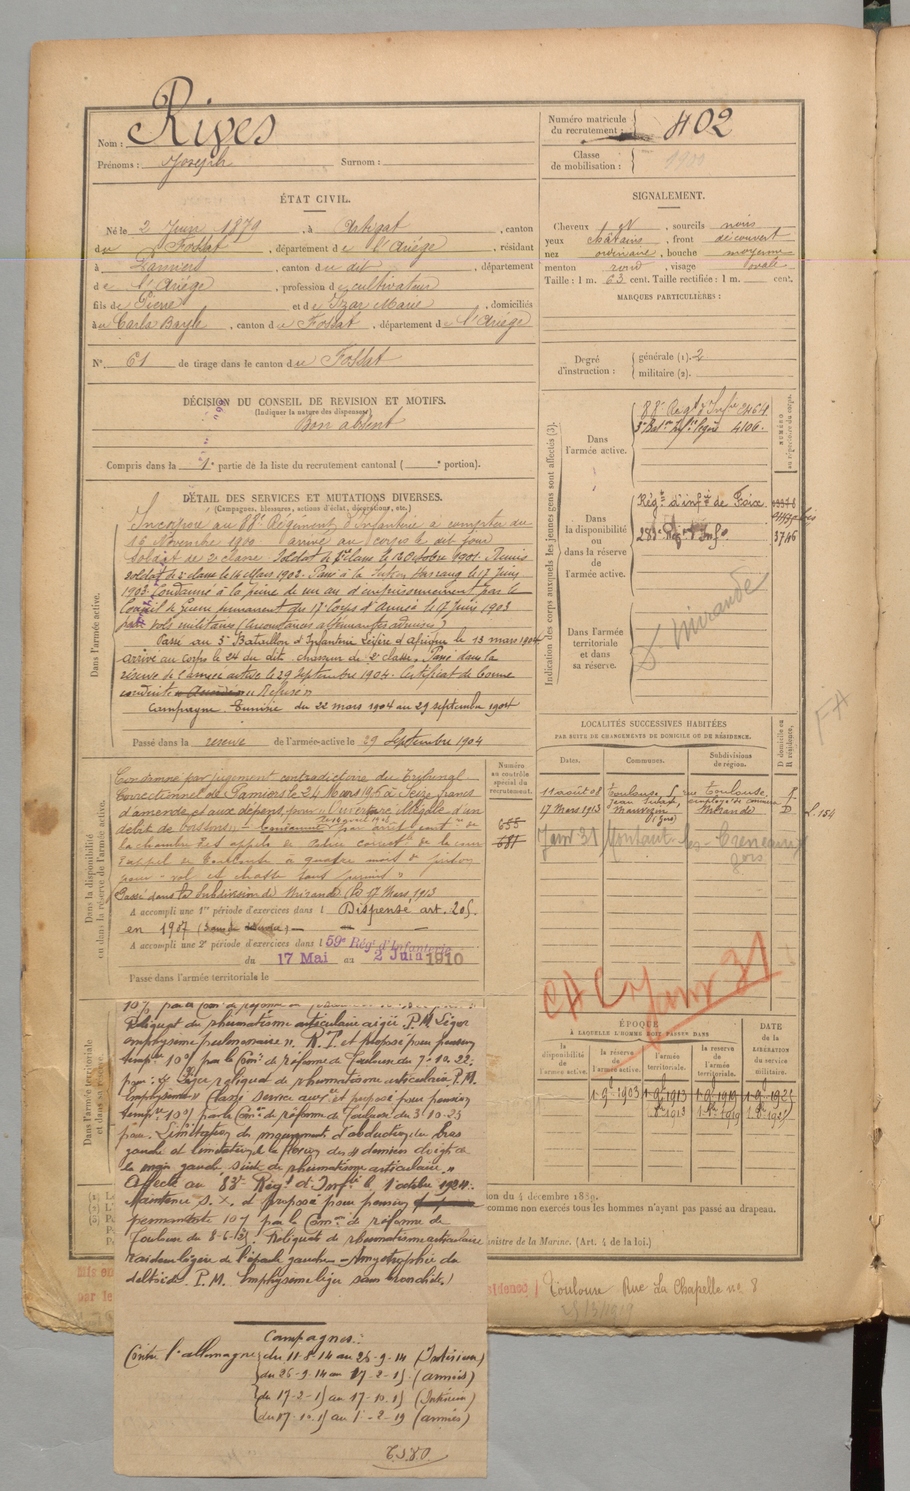 Nom : Rives
Prénoms : Joseph Surnom :
Numéro matricule du recrutement : 402
Classe de mobilisation : 1900
ÉTAT CIVIL.
Né le 2 Juin 1879, à Artigat, canton
du Fossat, département de l'Ariége, résidant
à Pamiers, canton du dit, département
de l'Ariége, profession de cultivateur
fils de Pierre et de Izar Marie, domiciliés
à Carla Bayle, canton du Fossat, département de l'Ariége
N° 61 de tirage dans le canton du Fossat
SIGNALEMENT.
Cheveux et, sourcils noirs
yeux châtains, front découvert
nez ordinaire, bouche moyenne
menton rond, visage ovale
Taille : 1 m. 63 cent. Taille rectifiée : 1 m. cent.
MARQUES PARTICULIÈRES :
Degré d'instruction : générale (1). 2
militaire (2).
DÉCISION DU CONSEIL DE REVISION ET MOTIFS.
(Indiquer la nature des dispenses)
Bon absent
Compris dans la 1e partie de la liste du recrutement cantonal ( e portion).
DÉTAIL DES SERVICES ET MUTATIONS DIVERSES.
(Campagnes, blessures, actions d'éclat, décorations, etc.)
Dans l'armée active.
Incorporé au 88e Régiment d'Infanterie à compter du
16 Novembre 1900 arrivé au corps le dit jour
soldat de 2e classe. Soldat de 1e classe le 12 Octobre 1901. Remis
soldat de 2e classe le 14 Mars 1903. Passé à la Section le 17 Juin
1903. Condamné à la peine de un an d'emprisonnement par le
Conseil de Guerre permanent du 17e Corps d'Armée le 17 Juin 1903
pour vols militaires (circonstances atténuantes admises)
Passé au 5e Bataillon d'Infanterie Légère d'Afrique le 13 mars 1904
arrivé au corps le 24 du dit. chasseur de 2e classe. Passé dans la
réserve de l'armée active le 29 septembre 1904. Certificat de bonne
conduite Refusé
Campagne Tunisie du 22 mars 1904 au 29 septembre 1904
Passé dans la reserve de l'armée active le 29 Septembre 1904
Indication des corps auxquels les jeunes gens sont affectés (3).
NUMÉRO au répertoire du corps.
Dans l'armée active.
88e Régt d'Infie 3464
5e Batn Infie légère 4106.
Dans la disponibilité ou dans la réserve de l'armée active.
Régt d'infie de Foix
283e Régt d'Info 3746
Dans l'armée territoriale et dans sa réserve.
S. Mirande
FA
Dans la disponibilité ou dans la réserve de l'armée active.
Numéro au contrôle spécial du recrutement.
655
681
Condamné par jugement contradictoire du Tribunal
Correctionnel de Pamiers le 24 Mars à Seize francs
d'amende et aux dépens pour Ouverture illégale d'un
débit de boissons. Condamné par arrêt de
la chambre des appels de Police correctlle de la cour
d'appel de Toulouse à quatre mois de prison
pour vol et chasse sans permis
Passé dans la Subdivision de Mirande le 17 Mars 1913
A accompli une 1re période d'exercices dans l Dispensé art.
en 1907
A accompli une 2e période d'exercices dans l 59e Rég d'Infanterie
du 17 Mai au 2 Juin 1910
Passé dans l'armée territoriale le
LOCALITÉS SUCCESSIVES HABITÉES
PAR SUITE DE CHANGEMENTS DE DOMICILE OU DE RÉSIDENCE.
Dates. Communes. Subdivisions de région. D domicile ou R résidence.
11 août 08 Toulouse, Toulouse R
17 Mars 1913 Mauvezin (Gers) Mirande D L. 154
Janv 31 Montaut les Créneaux
Gers
CAC Janv 31
Dans l'armée territoriale et dans sa réserve.
Reliquat de rhumatisme articulaire aigu P.M. Léger
emphysème pulmonaire n. R.I. et proposé pour pension
tempre 10% par la Comon de réforme de Toulouse du 7-10-22
pour : 1° Léger reliquat de rhumatisme articulaire P.M.
Emphysème Classé service auxe et proposé pour pension
tempre 10% par la Comon de réforme de Toulouse du 3-10-23
pour. Limitation du mouvement d'abduction du bras
gauche et limitation de la flexion des 4 derniers doigts de
la main gauche, suite de rhumatisme articulaire
Affecté au 83e Régt d'Infie le 1 octobre 1924.
Maintenu S.X. et proposé pour pension
permanente 10% par la Comon de réforme de
Toulouse du 8-6-25. Reliquat de rhumatisme articulaire
raideur légère de l'épaule gauche - Amyotrophie du
deltoïde. P.M. Emphysème léger sans bronchite.
Campagnes :
Contre l'allemagne du 11-8-14 au 26-9-14 (Intérieur)
du 26-9-14 au 17-2-15 (armées)
du 17-2-15 au 17-10-15 (Intérieur)
du 17-10-15 au 1-2-19 (armées)
T.S.V.P.
ÉPOQUE
À LAQUELLE L'HOMME DOIT PASSER DANS
la disponibilité de l'armée active. la réserve de l'armée active. l'armée territoriale. la réserve de l'armée territoriale.
DATE de la LIBÉRATION du service militaire.
1 9e 1903 1 9e 1913 1 9e 1919 1 9e 1925
1913 1919 1925
ion du 4 décembre 1889.
comme non exercés tous les hommes n'ayant pas passé au drapeau.
inistre de la Marine. (Art. 4 de la loi.)
Toulouse Rue La Chapelle no 8